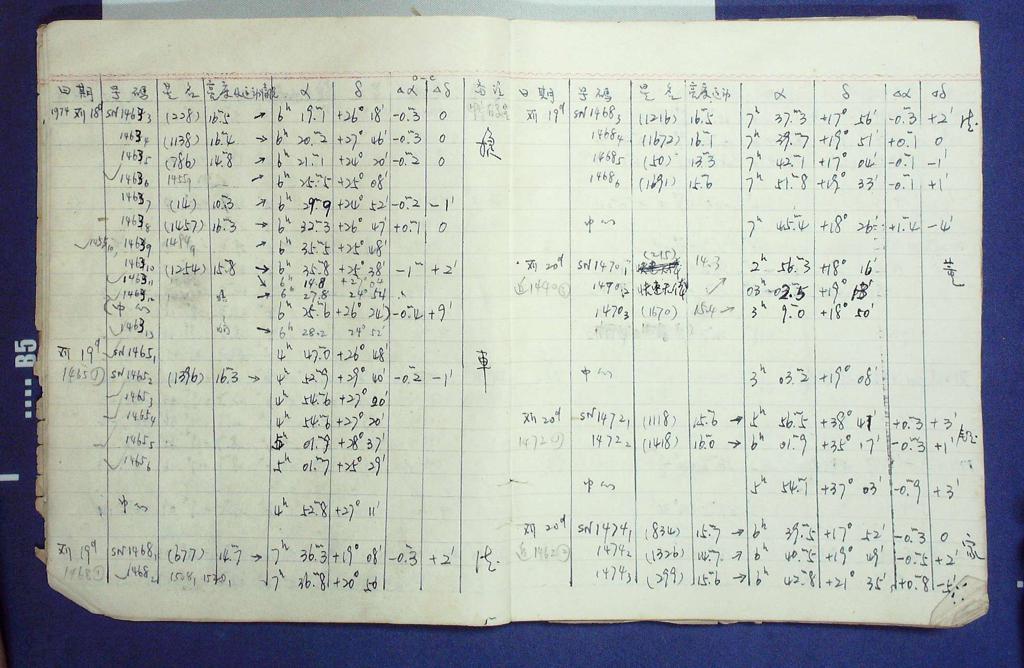 日期 号码 星名 亮度 α δ Δα Δδ 备注
1974 18ᵈ SN1463₃ (228) 16.5 → 6ʰ 19.ᵐ1 +26° 18′ -0.ᵐ3 0
1463₄ (1138) 16.ᵐ4 → 6ʰ 20.ᵐ2 +27° 46′ -0.ᵐ3 0
1463₅ (786) 14.ᵐ8 → 6ʰ 21.ᵐ1 +24° 20′ -0.ᵐ2 0
1463₆ → 6ʰ 25.ᵐ5 +25° 08′
1463₇ (14) 10.ᵐ3 → 6ʰ +24° 52′ -0.ᵐ2 -1′
1463₈ (1457) 16.ᵐ3 → 6ʰ 32.ᵐ3 +26° 47′ +0.ᵐ1 0
1463₉ → 6ʰ 35.ᵐ5 +25° 48′
1463₁₀ (1254) 15.ᵐ8 → 6ʰ 35.ᵐ8 +25° 38′ -1ᵐ +2′
1463₁₁ 6ʰ 14.8 +27° 04
1463₁₂ 6ʰ 27.8 24° 54
(中心 6ʰ 25.ᵐ6 +26° 24) -0.ᵐ4 +9′
1463₁₃ → 6ʰ 28.2 24° 52′
19ᵈ SN1465₁ 4ʰ 47.ᵐ0 +26° 48′
1465① SN1465₂ (1396) 16.ᵐ3 → 4ʰ 52.ᵐ9 +29° 40′ -0.ᵐ2 -1′ 車
1465₃ 4ʰ 54.ᵐ6 +27° 20′
1465₄ 4ʰ 54.ᵐ6 +27° 20′
1465₅ 5ʰ 01.ᵐ9 +28° 37′
1465₆ 5ʰ 01.ᵐ7 +25° 29′
中心 4ʰ 52.ᵐ8 +27° 11′
19ᵈ SN1468₁ (677) 14.ᵐ7 → 7ʰ 36.ᵐ3 +19° 08′ -0.ᵐ3 +2′
1468① 1468₂ 7ʰ 36.ᵐ8 +20° 50
日期 号码 星名 亮度 α δ Δα Δδ
19ᵈ SN1468₃ (1216) 16.ᵐ5 7ʰ 37.ᵐ3 +17° 56′ -0.ᵐ3 +2′
1468₄ (1672) 16.ᵐ1 7ʰ 39.ᵐ7 +19° 51′ +0.ᵐ1 0
1468₅ (50) 13.ᵐ3 7ʰ 42.ᵐ1 +17° 04′ -0.ᵐ1 -1′
1468₆ (1691) 15.ᵐ6 7ʰ 51.ᵐ8 +19° 33′ -0.ᵐ1 +1′
中心 7ʰ 45.ᵐ4 +18° 26′ +1.ᵐ4 -4′
20ᵈ SN1470₁ (215) 14.3 2ʰ 56.ᵐ3 +18° 16′
1470₂ 快速天体 03ʰ +19° 13′
1470₃ (1670) 15.4 → 3ʰ 9.ᵐ0 +18° 50′
中心 3ʰ 03.ᵐ2 +19° 08′
20ᵈ SN1472₁ (1118) 15.ᵐ6 → 5ʰ 56.ᵐ5 +38° 41′ +0.ᵐ3 +3′
1472① 1472₂ (1418) 16.ᵐ0 → 6ʰ 01.ᵐ9 +35° 17′ -0.ᵐ3 +1′
中心 5ʰ 54.ᵐ1 +37° 03′ -0.ᵐ9 +3′
20ᵈ SN1474₁ (834) 15.ᵐ7 → 6ʰ 39.ᵐ5 +17° 52′ -0.ᵐ3 0 家
1474₂ (1326) 14.ᵐ7 → 6ʰ 40.ᵐ5 +19° 49′ -0.ᵐ5 +2′
1474₃ (299) 15.ᵐ6 → 6ʰ 42.ᵐ8 +21° 35′ +0.ᵐ8 -5′
B5